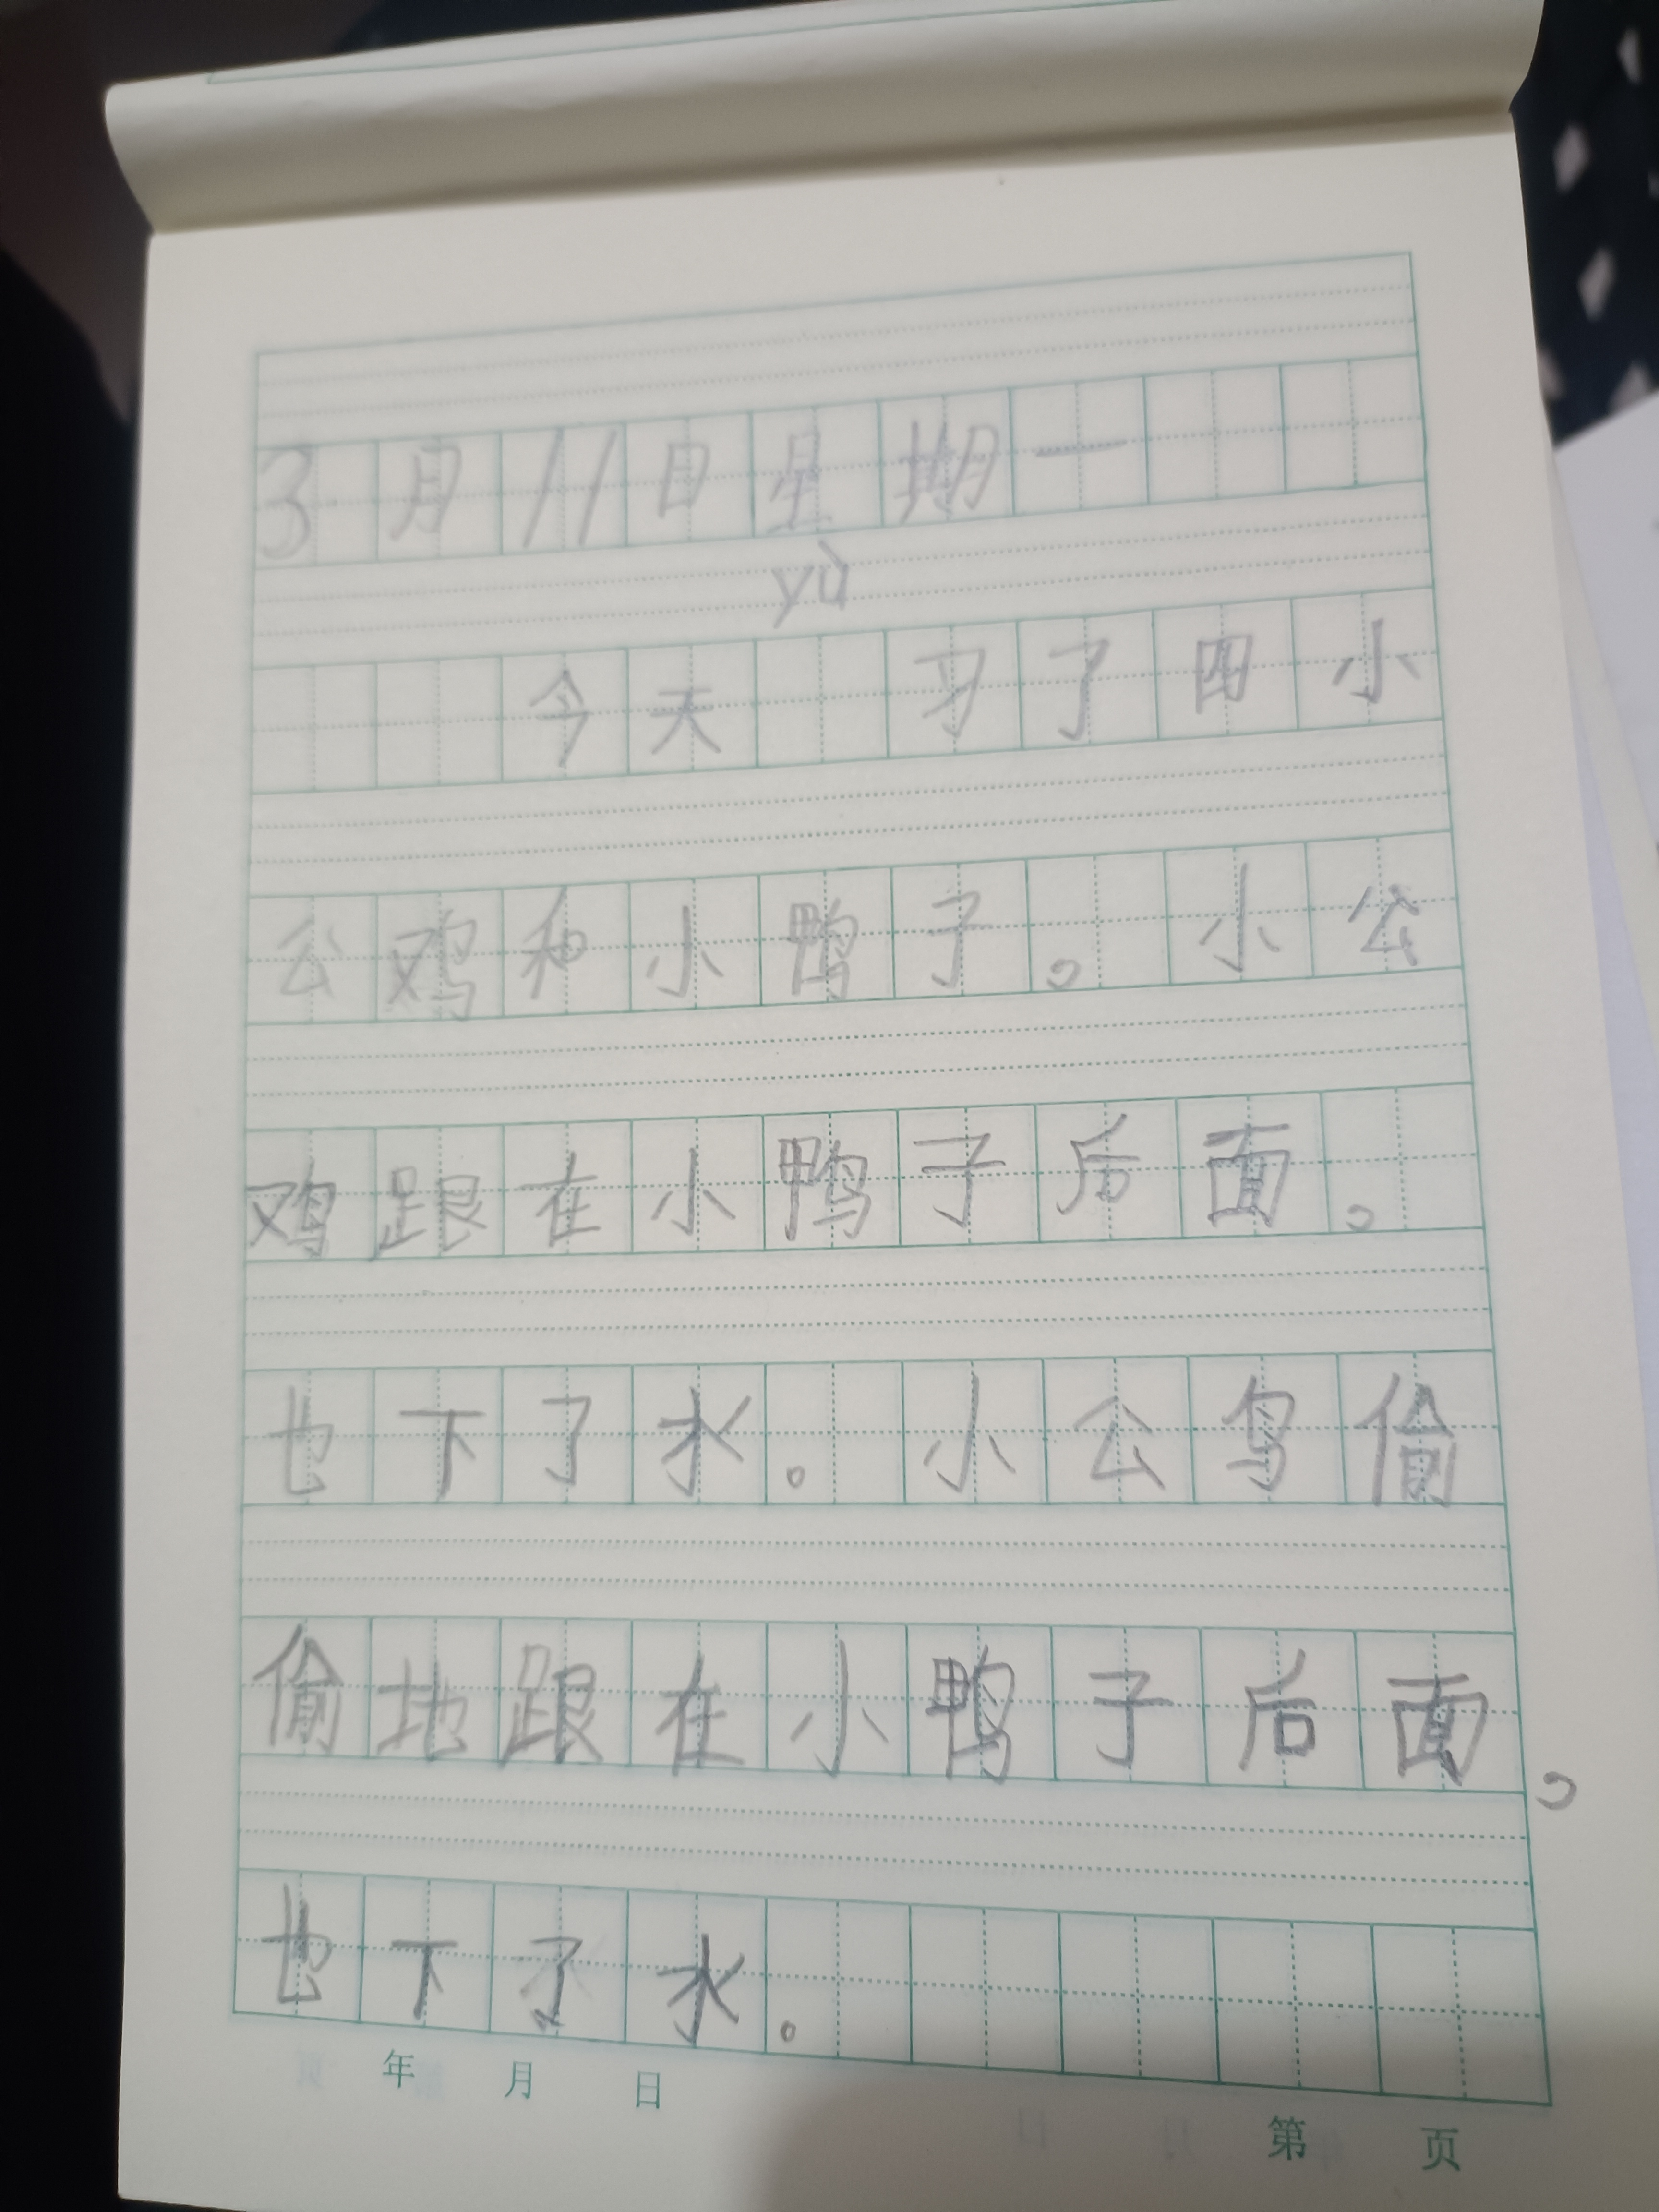 3月11日星期一
yù
今天 习了四小
公鸡和小鸭子。小公
鸡跟在小鸭子后面。
也下了水。小公鸟偷
偷地跟在小鸭子后面。
也下了水。
年 月 日
第 页